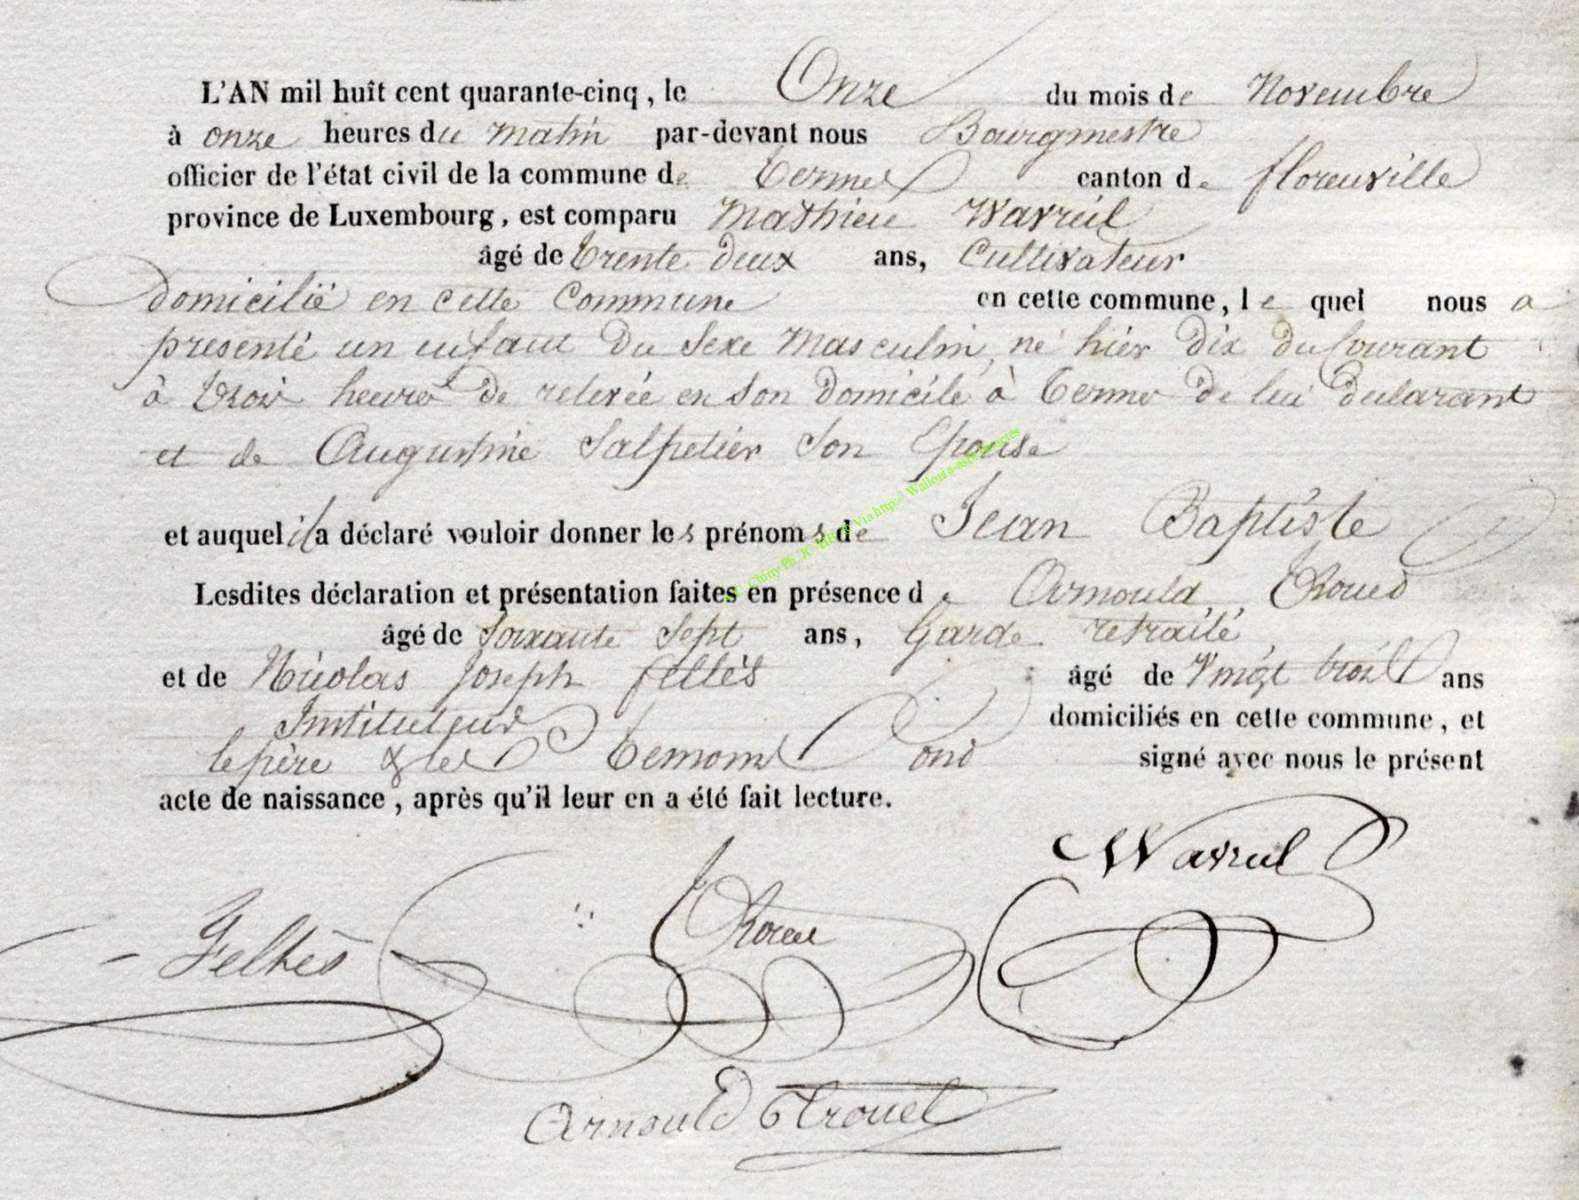 L'AN mil huit cent quarante-cinq, le Onze du mois de Novembre
à onze heures du matin par-devant nous Bourgmestre
officier de l'état civil de la commune de Termes canton de florenville
province de Luxembourg, est comparu Mathieu Wavreil
âgé de trente deux ans, Cultivateur
domicilié en cette Commune en cette commune, le quel nous a
presenté un enfant du sexe Masculin, né hier dix du Courant
à trois heures de relevée en son domicile à Termes de lui declarant
et de Augustine Salpetier son Epouse
et auquel il a déclaré vouloir donner les prénoms de Jean Baptiste
Lesdites déclaration et présentation faites en présence de Arnould
âgé de soixante sept ans, Garde retraité
et de Nicolas Joseph feltés âgé de Vingt trois ans
Instituteur domiciliés en cette commune, et
le père & les temoins ont signé avec nous le présent
acte de naissance, après qu'il leur en a été fait lecture.
Wavreil
Feltés
Arnould